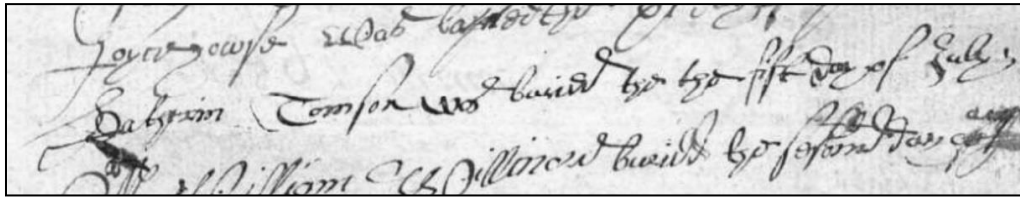 Joyce yowse was
Katherin Tomson was buried the the fift day of July
William Willmord buried the second day of